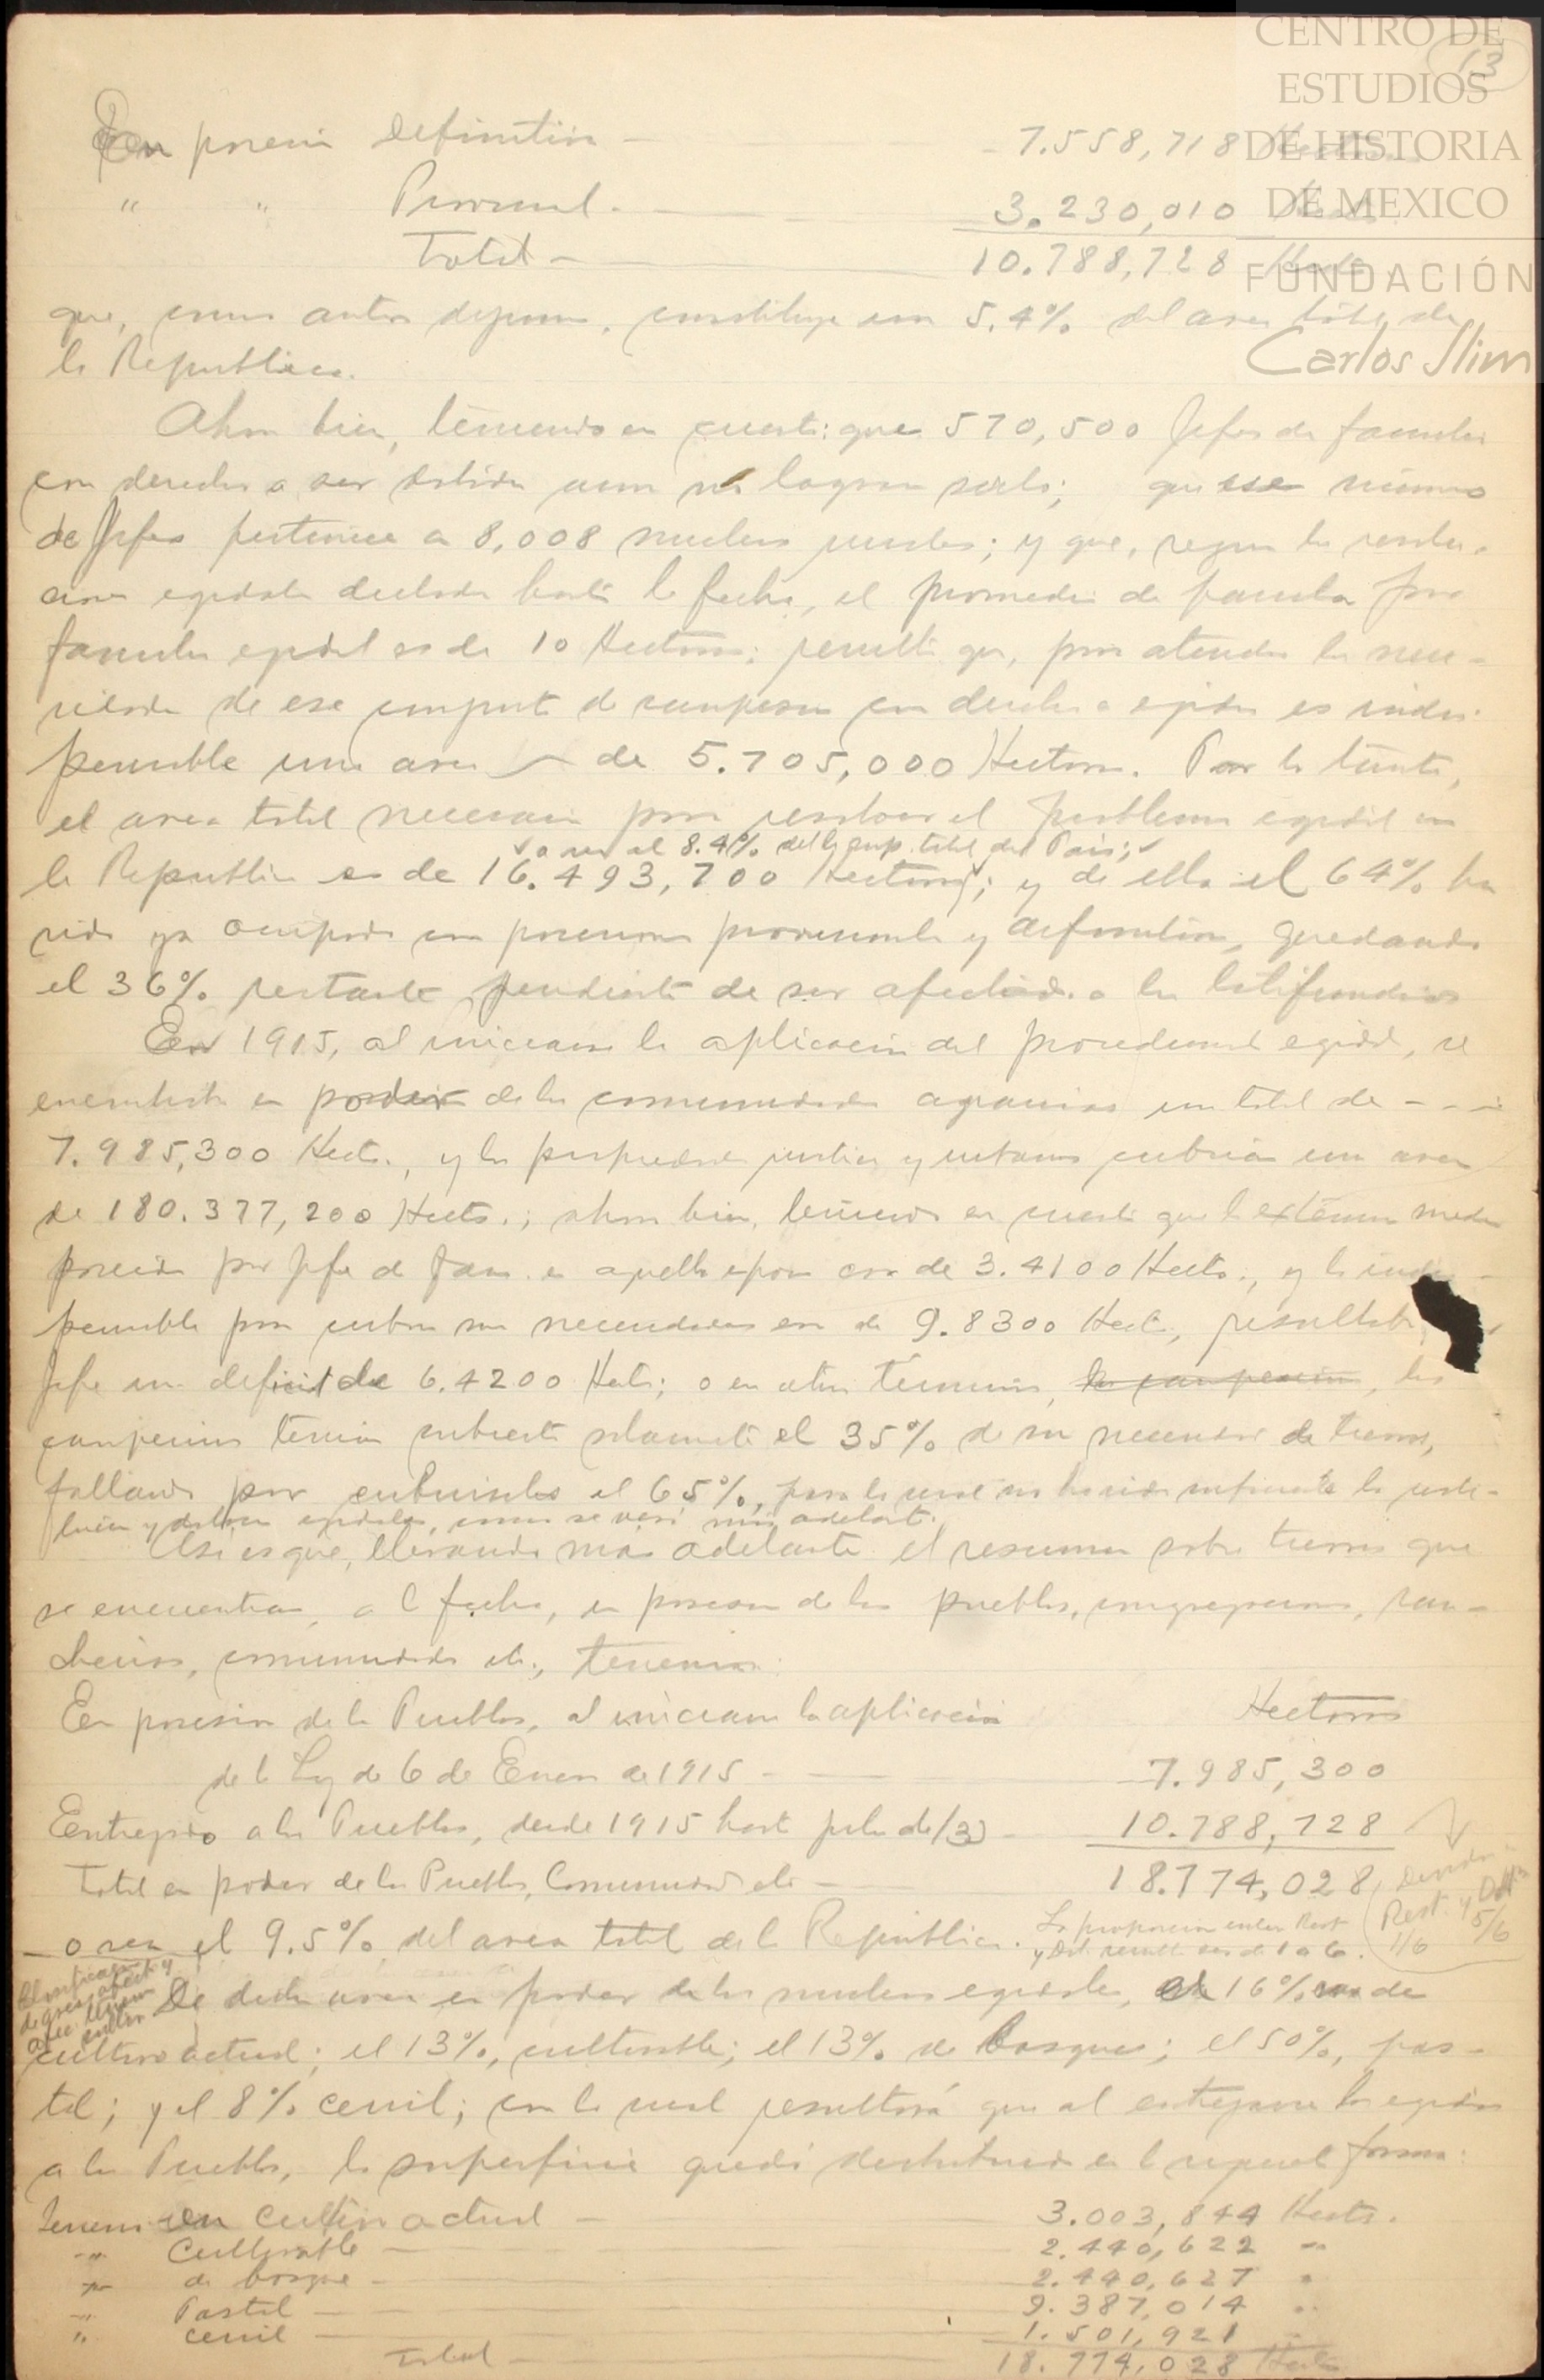 CENTRO DE
ESTUDIOS
DE HISTORIA
DE MEXICO
FUNDACIÓN
Carlos Slim
13
En posesión definitiva — 7.558,718 Hects.
" " Provisional — 3.230,010 Hects.
Total — 10.788,728 Hects.
que, como antes dijimos, constituye un 5.4% del area total de
la Republica.
Ahora bien, teniendo en cuenta: que 570,500 Jefes de familia
con derecho a ser dotados aun no logran serlo; que ese número
de Jefes pertenece a 8,008 nucleos rurales; y que, segun las resolu-
ciones ejidales dictadas hasta la fecha, el promedio de parcela por
familia ejidal es de 10 Hectáreas; resulta que, para atender las nece-
sidades de ese conjunto de campesinos con derecho a ejidos es indis-
pensable una area de 5.705,000 Hectáreas. Por lo tanto,
el area total necesaria para resolver el problema ejidal en
o sea el 8.4% de la sup. total del País;
la Republica es de 16.493,700 Hectáreas; y de ella el 64% ha
sido ya ocupado con posesiones provisionales y definitivas, quedando
el 36% restante pendiente de ser afectado a los latifundios
En 1915, al iniciarse la aplicación del procedimiento ejidal, se
encontraba en poder de las comunidades agrarias un total de - - -
7.985,300 Hects., y las propiedades rusticas y urbanas cubrían una area
de 180.377,200 Hects.; ahora bien, teniendo en cuenta que la extensión media
poseida por Jefe de fam. en aquella epoca era de 3.4100 Hects., y la indis-
pensable para cubrir sus necesidades era de 9.8300 Hects., resultaba
Jefe un deficit de 6.4200 Hects; o en otros términos, los campesinos, los
campesinos tenían cubierta solamente el 35% de su necesidad de tierras,
faltando por cubrirseles el 65%, para lo cual no ha sido suficiente la resti-
tución y dotación ejidales, como se verá más adelante.
Asi es que, llevando más adelante el resumen sobre tierras que
se encuentran, a la fecha, en posesion de los pueblos, congregaciones, ran-
cherías, comunidades etc., tenemos:
En posesión de los Pueblos, al iniciarse la aplicación Hectáreas
de la Ley de 6 de Enero de 1915 — 7.985,300
Entregado a los Pueblos, desde 1915 hasta julio de/33 — 10.788,728
Total en poder de los Pueblos, Comunidades etc — 18.774,028
— o sea el 9.5% del area total de la Republica.
La proporcion entre Rest.
y Dot. resulta ser de 1 a 6.
Rest. y Dot.
1/6 5/6
De dicha area en poder de los nucleos ejidales, el 16% es de
cultivo actual; el 13%, cultivable; el 13% de bosques; el 50%, pas-
tal; y el 8% cerril; con lo cual resultará que al entregarse los ejidos
a los Pueblos, la superficie quedó distribuida en la siguiente forma:
Terrenos en Cultivo actual — 3.003,844 Hects.
" Cultivable — 2.440,622 "
" de bosque — 2.440,627 "
" Pastal — 9.387,014 "
" Cerril — 1.501,921 "
Total — 18.774,028 Hects